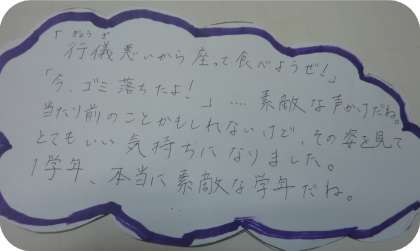 「行儀悪いから座って食べようぜ!」
「今、ゴミ落ちたよ!」…素敵な声かけだね。
当たり前のことかもしれないけど、その姿を見て
とてもいい気持ちになりました。
1学年、本当に素敵な学年だね。